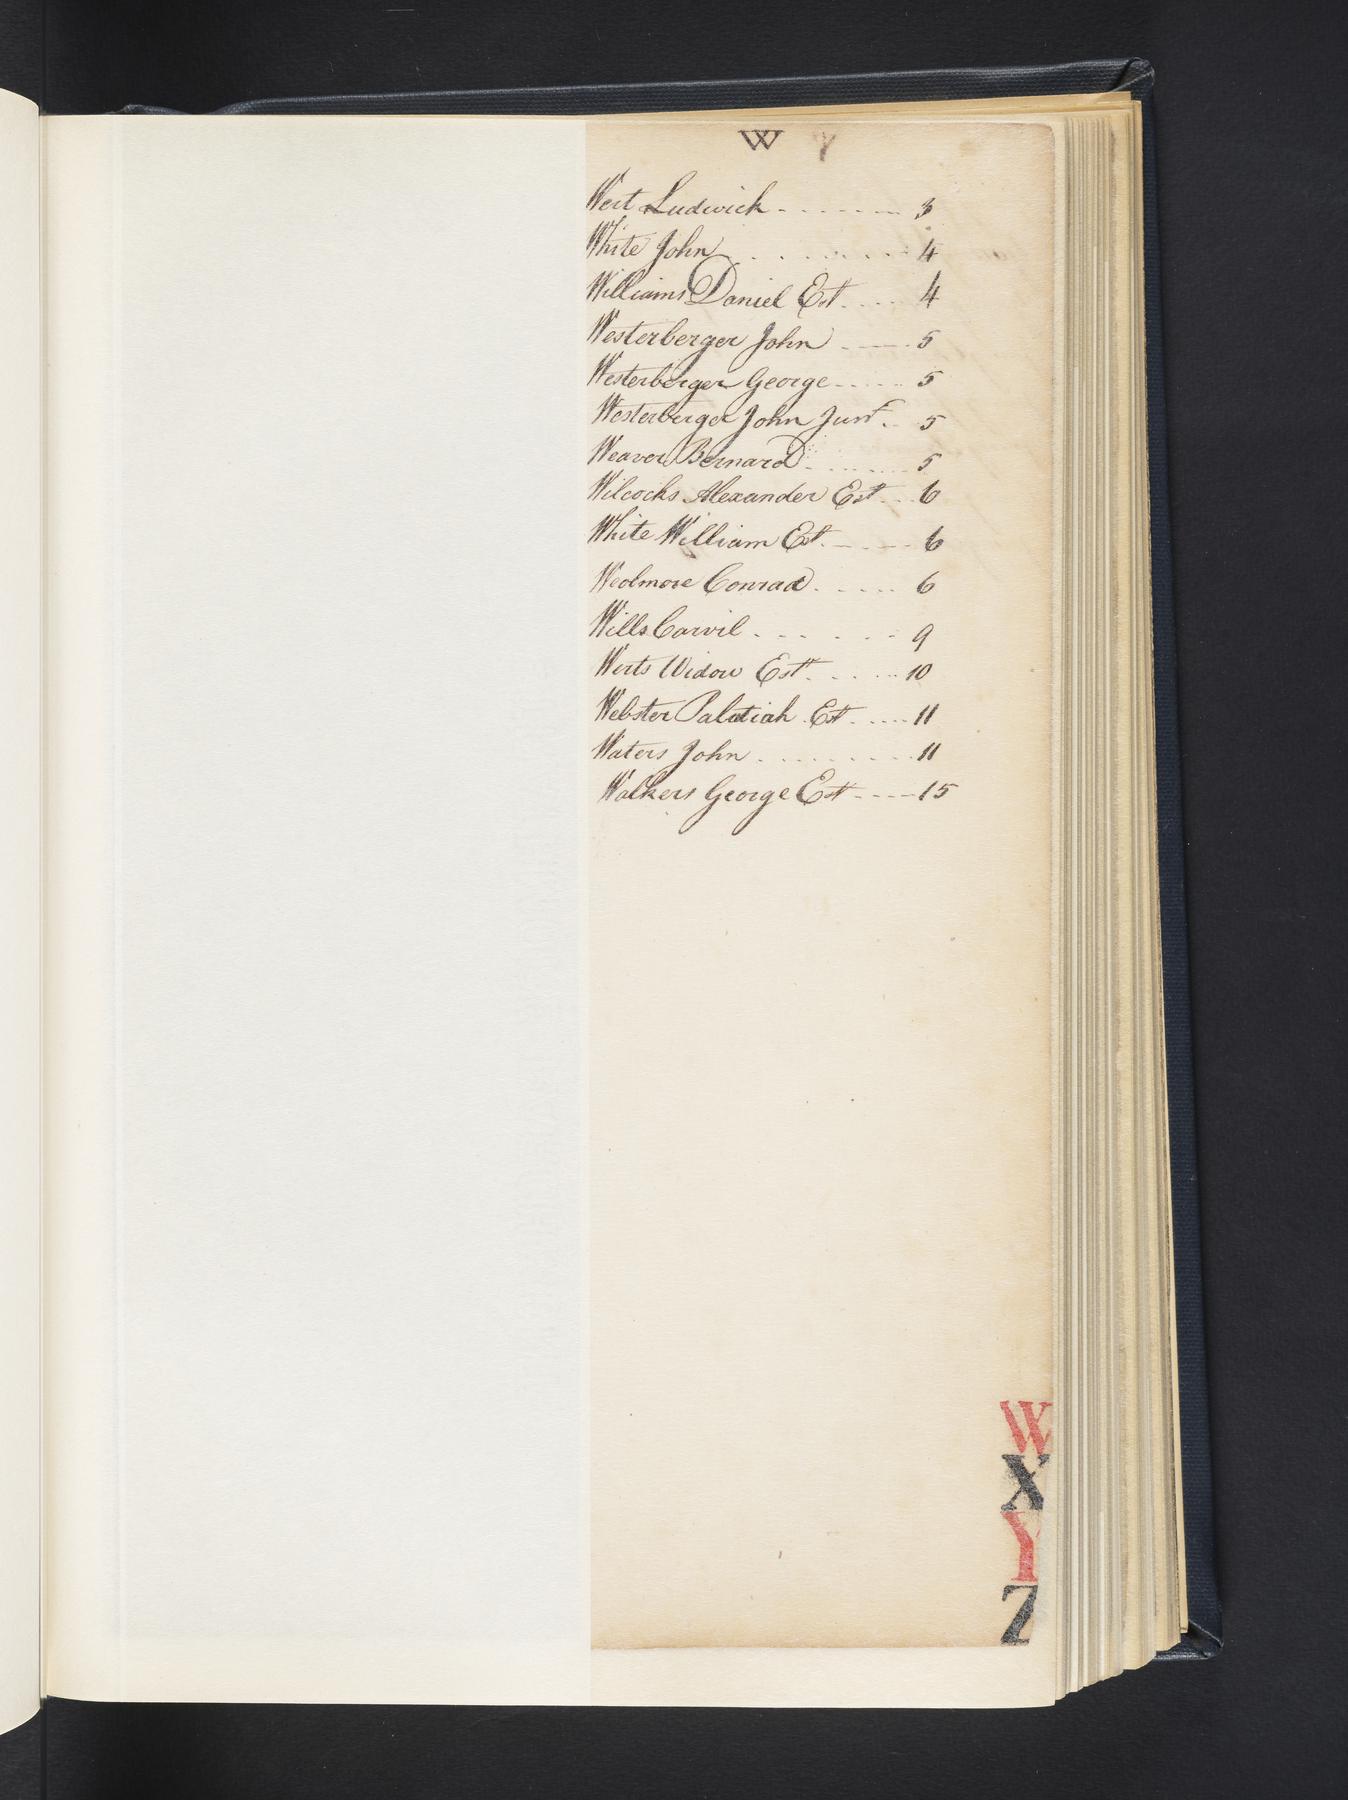 W Y
Wert Ludwick - - - - - - - 3
White John - - - - - - - 4
Williams Daniel Est - - - - 4
Westerberger John - - - - 5
Westerberger George - - - - - 5
Westerberger John Junr. - - 5
Weaver Bernard - - - - - - 5
Wilcocks Alexander Est - - - 6
White William Est. - - - - 6
Weolmore Conrad - - - - - 6
Wills Carvil - - - - - - 9
Werts Widow Est - - - - - 10
Webster Palatiah Est - - - - - 11
Waters John - - - - - - - - 11
Walkers George Est - - - - 15
W
X
Y
Z